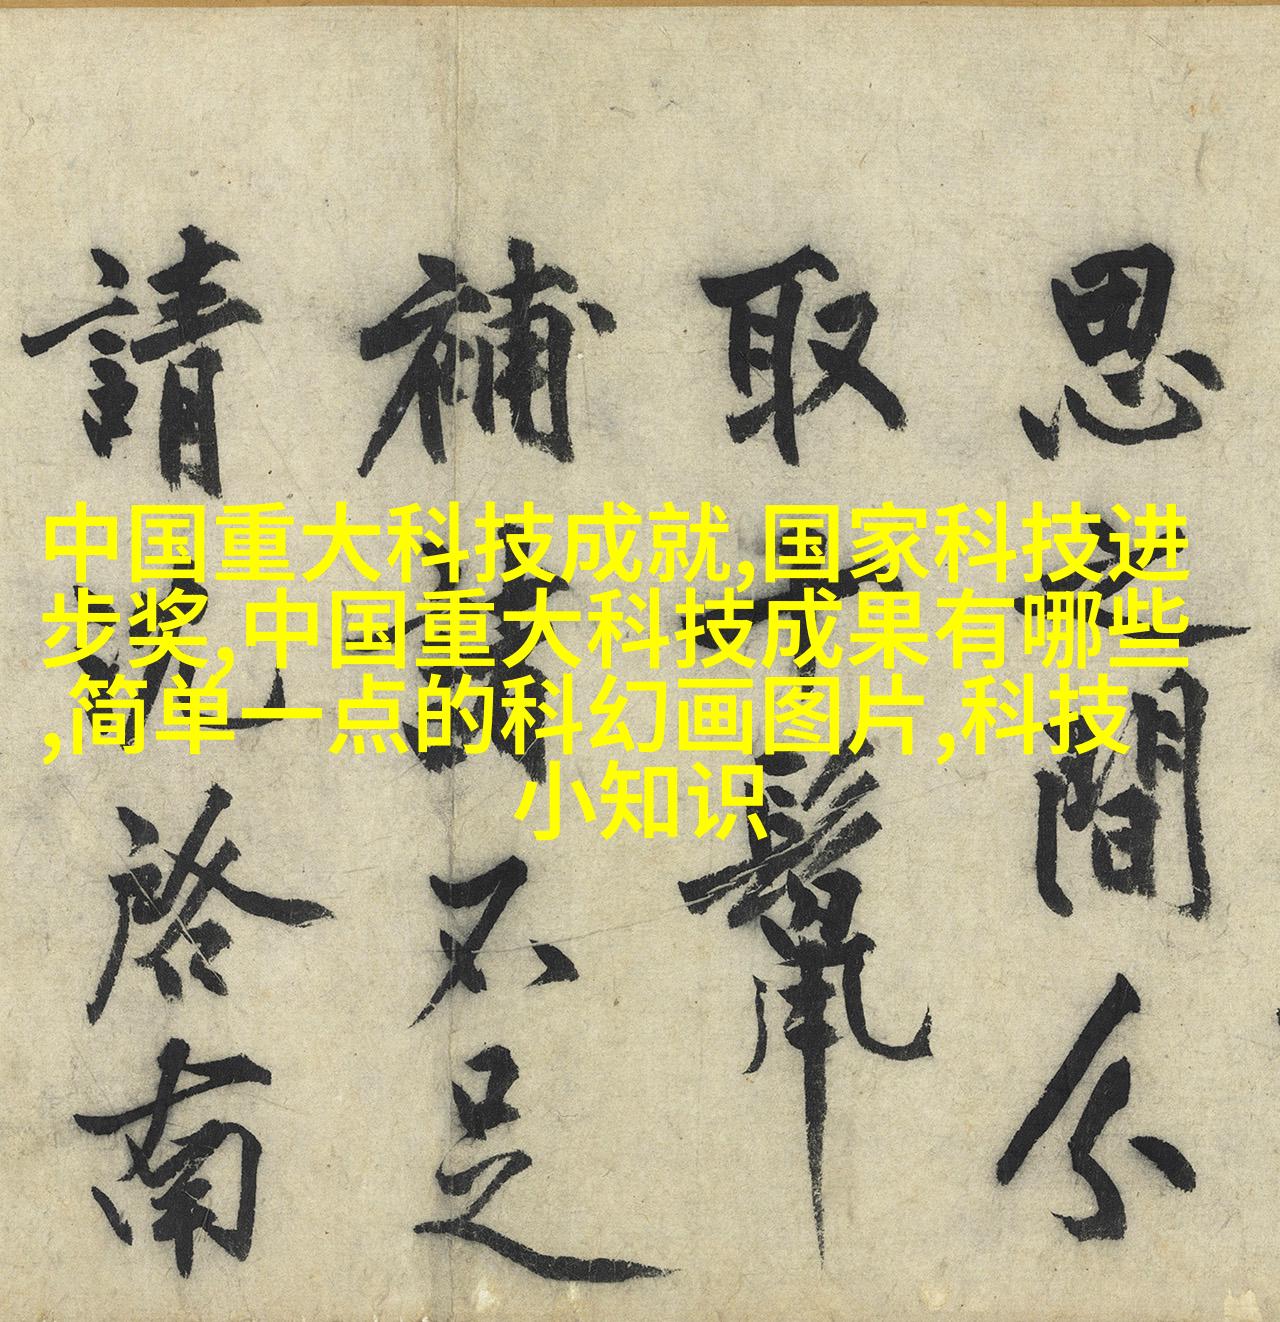 思之間分
取十鬣
補諸不足
請沈啓南
中国重大科技成就,国家科技进
步奖,中国重大科技成果有哪些
,简单一点的科幻画图片,科技
小知识